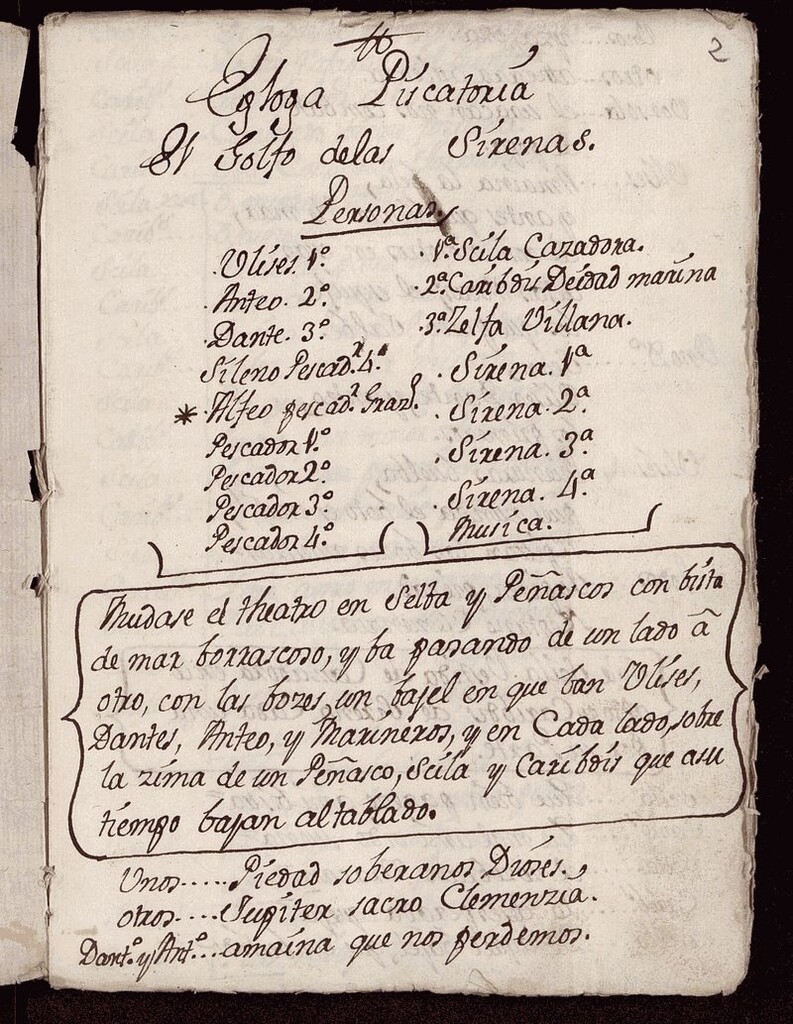 2
Egloga Piscatoria
El Golfo delas Sirenas.
Personas.
Ulises. 1º.
Anteo. 2º.
Dante. 3º.
Sileno Pescadr. 4º.
* Alfeo pescadr. Grazo.
Pescador 1º.
Pescador 2º.
Pescador 3º.
Pescador 4º.
1ª. Scila Cazadora.
2ª. Caribdis Deidad marina
3ª. Zelfa Villana.
Sirena. 1ª
Sirena. 2ª
Sirena. 3ª
Sirena. 4ª
Musica.
Mudase el theatro en Selba y Peñascos con bista
de mar borrascoso, y ba pasando de un lado â
otro, con las bozes, un bajel en que ban Ulises,
Dantes, Anteo, y Marineros, y en Cada lado, sobre
la zima de un Peñasco, Scila y Caribdis que asu
tiempo bajan altablado.
Unos.....Piedad soberanos Dioses.
otros....Jupiter sacro Clemenzia.
Dante. y Anto...amaina que nos perdemos.